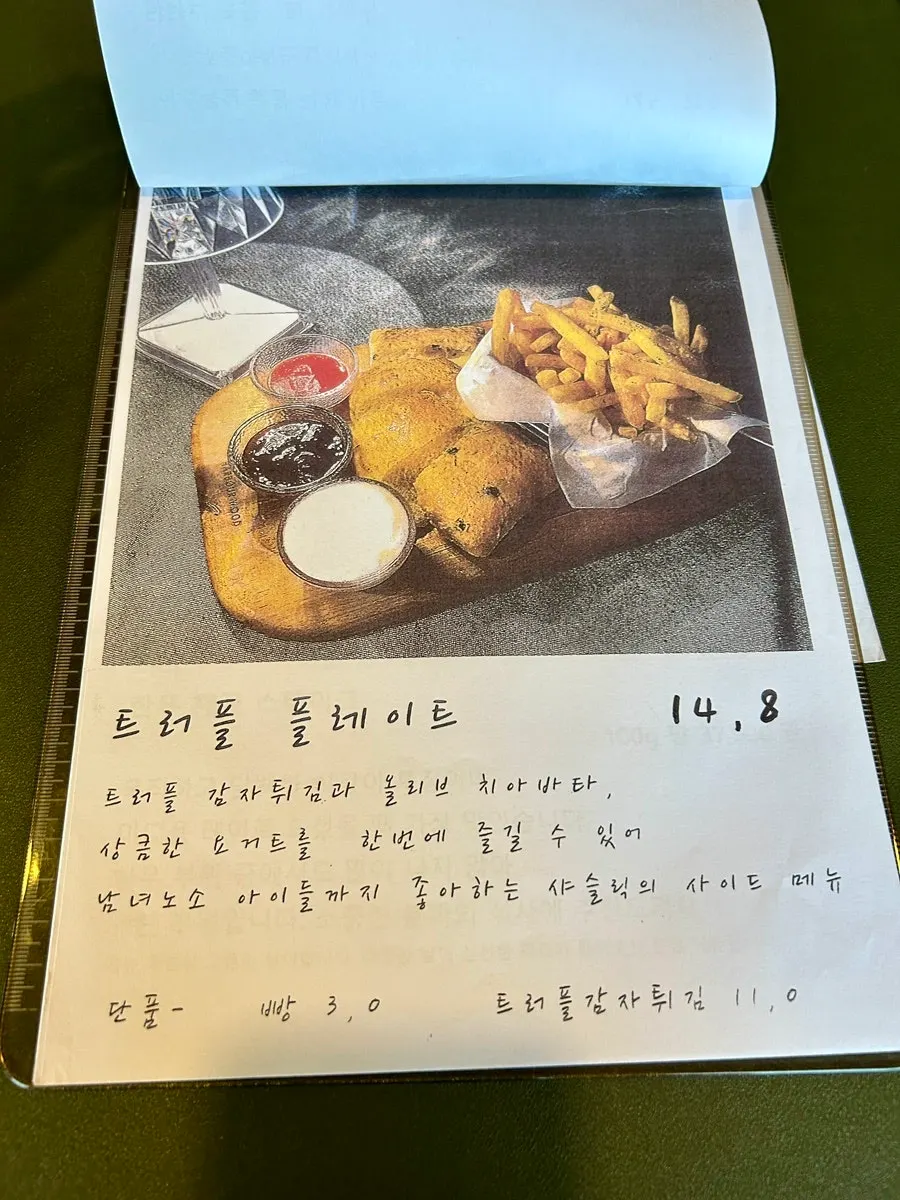 트러플 플레이트 14,8
트러플 감자튀김과 올리브 치아바타,
상큼한 요거트를 한번에 즐길 수 있어
남녀노소 아이들까지 좋아하는 샤슬릭의 사이드 메뉴
단품- 빵 3,0 트러플감자튀김 11,0